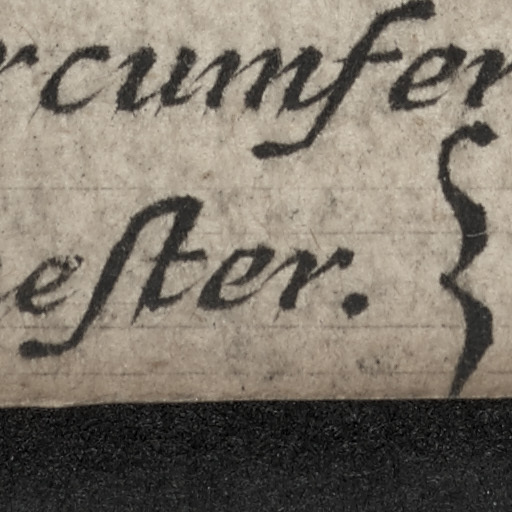 rcumfer
eſter. }